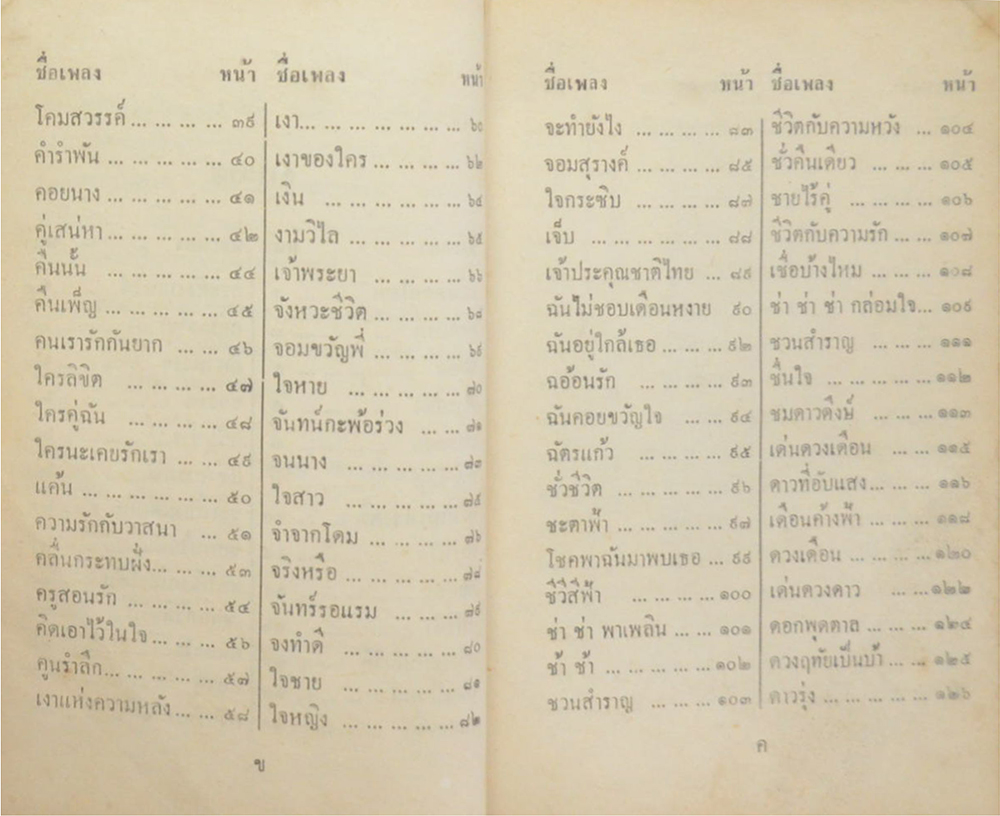 ชื่อเพลง หน้า
โคมสวรรค์ ... ... ... ... ๓๙
คำรำพัน ... ... ... ... ๔๐
คอยนาง ... ... ... ... ๔๑
คู่เสน่หา ... ... ... ... ๔๒
คืนนั้น ... ... ... ... ๔๔
คืนเพ็ญ ... ... ... ... ๔๕
คนเรารักกันยาก ... ... ๔๖
ใครลิขิต ... ... ... ๔๗
ใครคู่ฉัน ... ... ... ๔๘
ใครนะเคยรักเรา ... ... ๔๙
แค้น ... ... ... ... ... ๕๐
ความรักกับวาสนา ... ๕๑
คลื่นกระทบฝั่ง... ... ... ๕๓
ครูสอนรัก ... ... ... ... ๕๔
คิดเอาไว้ในใจ ... ... ... ๕๖
คูนรำลึก... ... ... ... ... ๕๗
เงาแห่งความหลัง ... ... ๕๘
ชื่อเพลง หน้า
เงา... ... ... ... ... ... ... ๖๐
เงาของใคร ... ... ... ... ๖๒
เงิน ... ... ... ... ... ๖๔
งามวิไล ... ... ... ... ... ๖๕
เจ้าพระยา ... ... ... ... ๖๖
จังหวะชีวิต ... ... ... ... ๖๘
จอมขวัญพี่ ... ... ... ... ๖๙
ใจหาย ... ... ... ... ... ๗๐
จันทน์กะพ้อร่วง ... ... ๗๑
จนนาง ... ... ... ... ... ๗๓
ใจสาว ... ... ... ... ... ๗๕
จำจากโดม ... ... ... ... ๗๖
จริงหรือ ... ... ... ... ... ๗๘
จันทร์รอแรม ... ... ... ๗๙
จงทำดี ... ... ... ... ... ๘๐
ใจชาย ... ... ... ... ... ๘๑
ใจหญิง ... ... ... ... ... ๘๒
ข
ชื่อเพลง หน้า
จะทำยังไง ... ... ... ... ๘๓
จอมสุรางค์ ... ... ... ... ๘๕
ใจกระซิบ ... ... ... ... ๘๗
เจ็บ ... ... ... ... ... ๘๘
เจ้าประคุณชาติไทย ... ๘๙
ฉันไม่ชอบเดือนหงาย ๙๐
ฉันอยู่ใกล้เธอ ... ... ... ๙๒
ฉอ้อนรัก ... ... ... ... ๙๓
ฉันคอยขวัญใจ ... ... ๙๔
ฉัตรแก้ว ... ... ... ... ๙๕
ชั่วชีวิต ... ... ... ... ... ๙๖
ชะตาฟ้า ... ... ... ... ... ๙๗
โชคพาฉันมาพบเธอ ... ๙๙
ชีวีสีฟ้า ... ... ... ... ๑๐๐
ช่า ช่า พาเพลิน ... ... ๑๐๑
ช้า ช้า ... ... ... ... ... ๑๐๒
ชวนสำราญ ... ... ... ๑๐๓
ชื่อเพลง หน้า
ชีวิตกับความหวัง ... ๑๐๔
ชั่วคืนเดียว ... ... ... ๑๐๕
ชายไร้คู่ ... ... ... ... ๑๐๖
ชีวิตกับความรัก ... ... ๑๐๗
เชื่อบ้างไหม ... ... ... ๑๐๘
ช่า ช่า ช่า กล่อมใจ... ๑๐๙
ชวนสำราญ ... ... ... ๑๑๑
ชื่นใจ ... ... ... ... ... ๑๑๒
ชมดาวดึงษ์ ... ... ... ๑๑๓
เด่นดวงเดือน ... ... ๑๑๕
ดาวที่อับแสง... ... ... ๑๑๖
เดือนค้างฟ้า ... ... ... ๑๑๘
ดวงเดือน ... ... ... ... ๑๒๐
เด่นดวงดาว ... ... ...๑๒๒
ดอกพุดตาล ... ... ... ๑๒๔
ดวงฤทัยเป็นบ้า ... ... ๑๒๕
ดาวรุ่ง ... ... ... ... ... ๑๒๖
ค